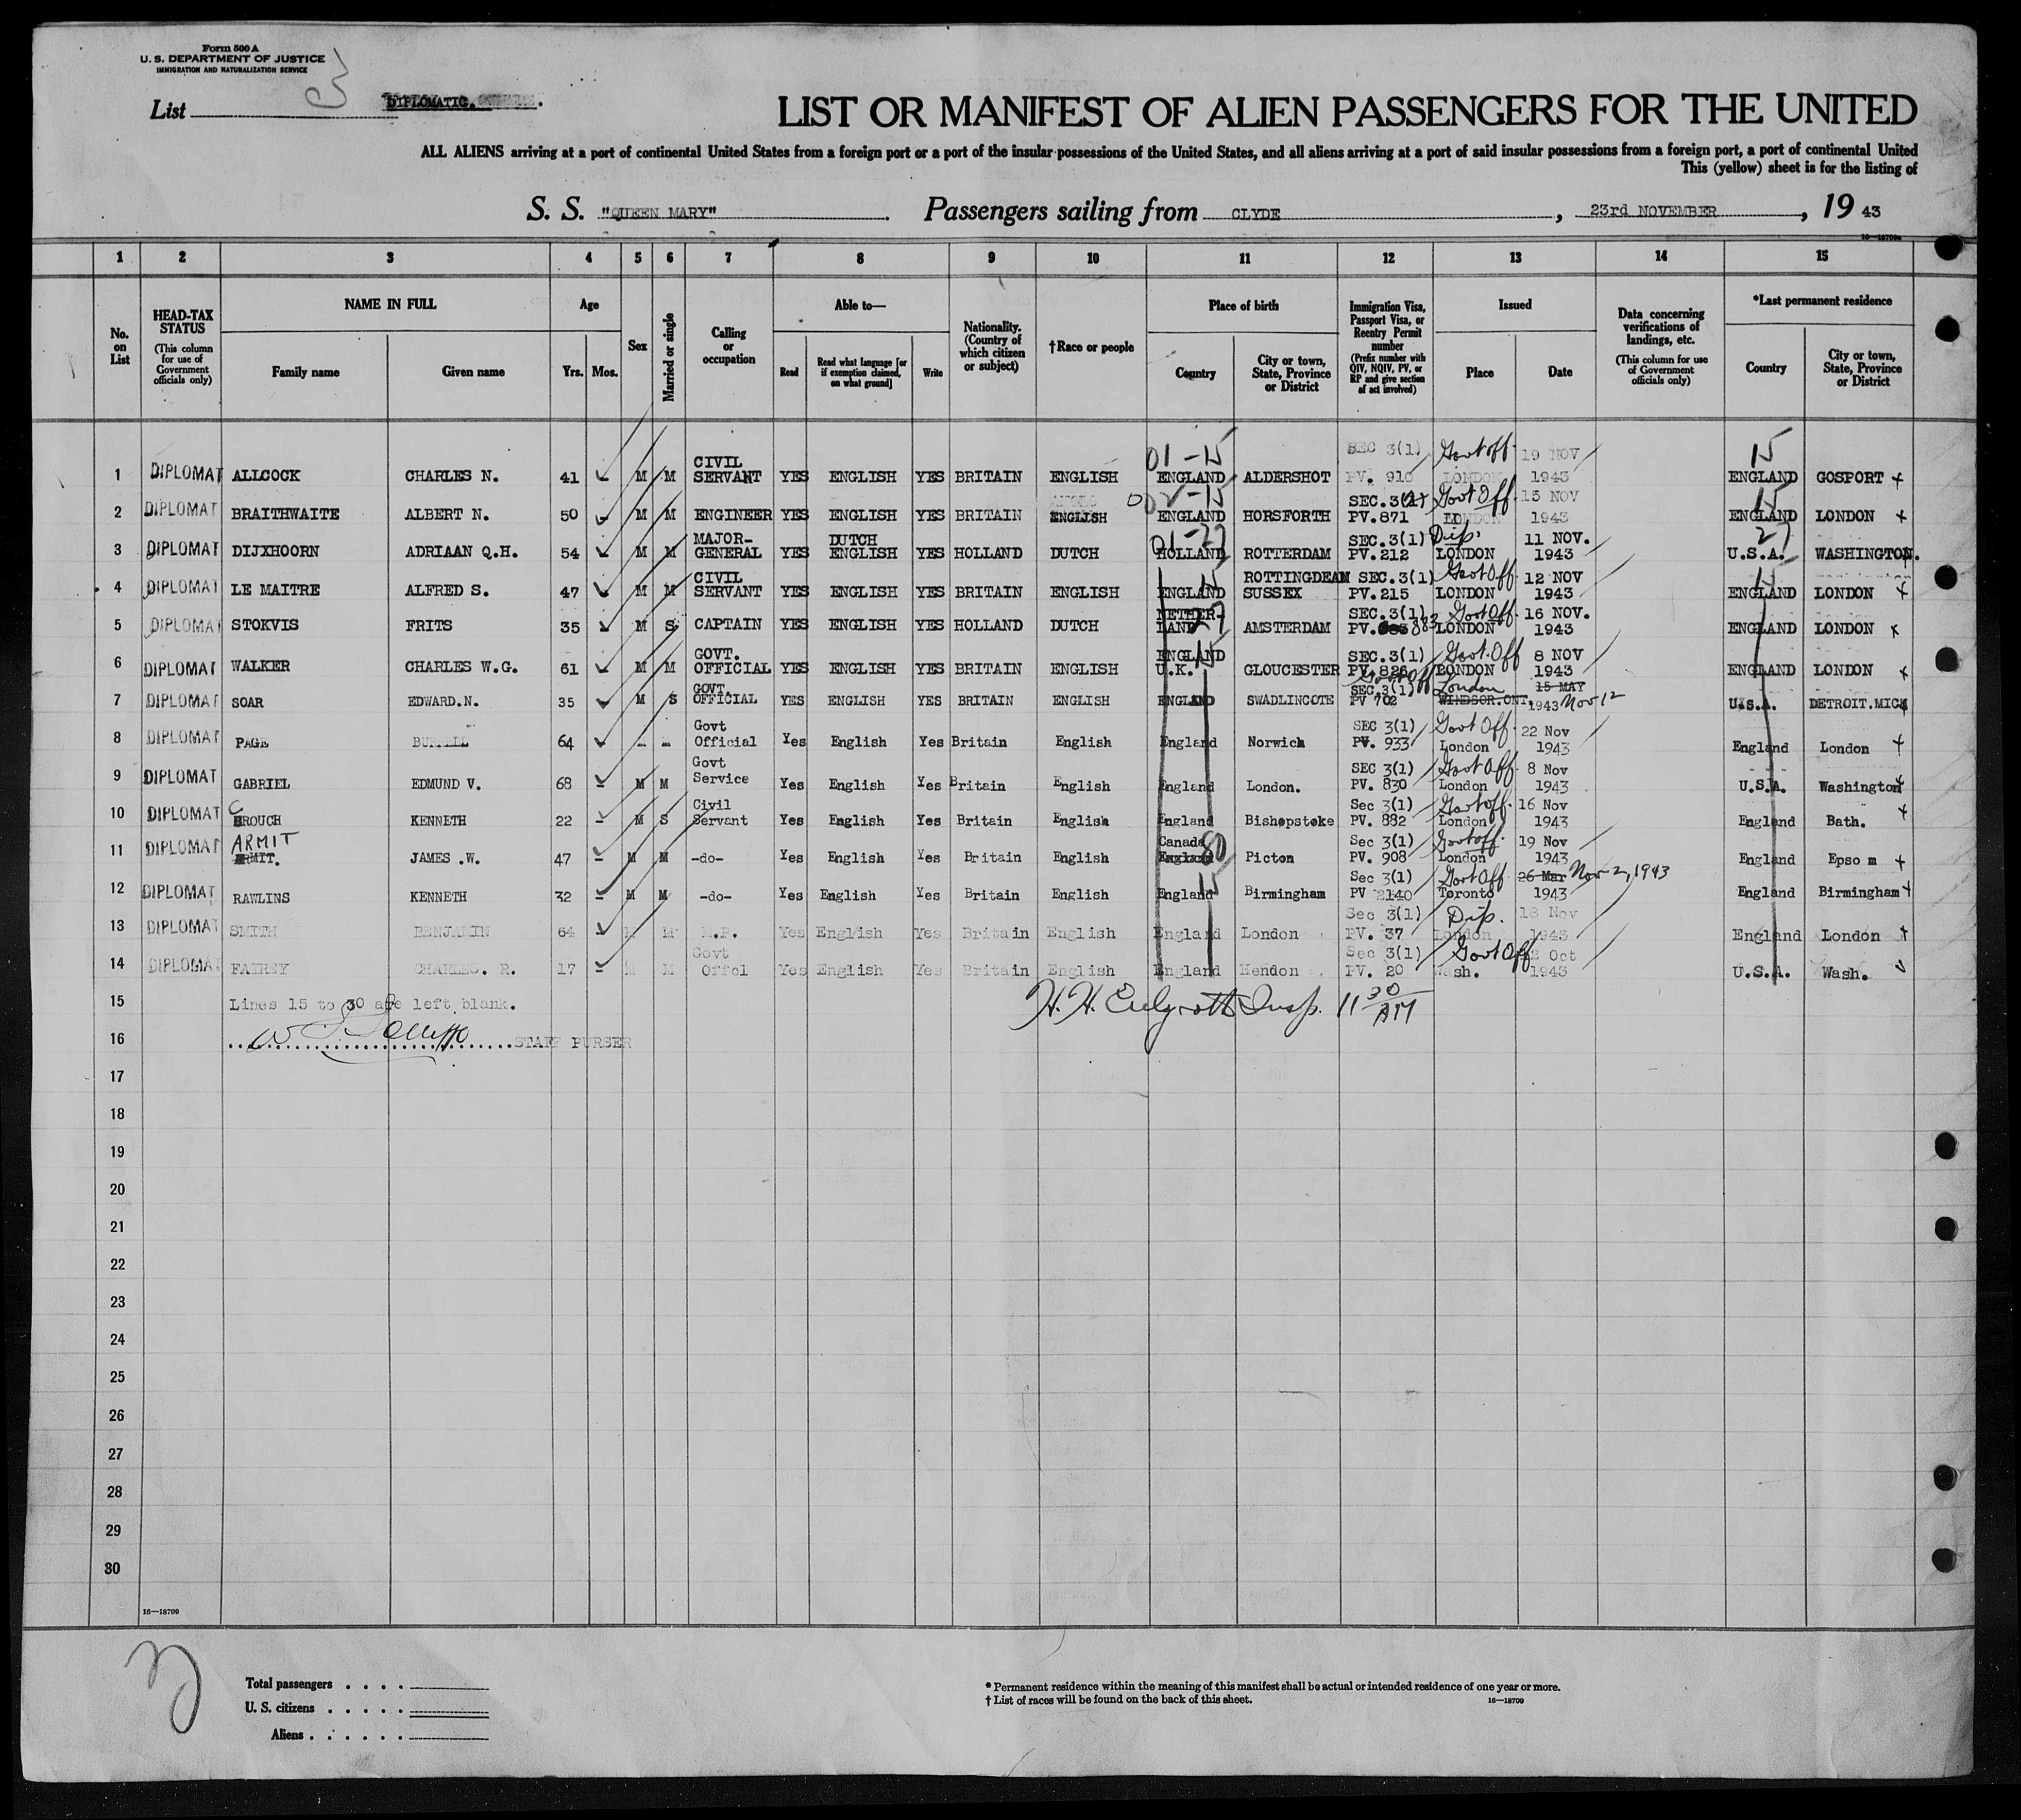 Form 500 A
U. S. DEPARTMENT OF JUSTICE
IMMIGRATION AND NATURALIZATION SERVICE
List DIPLOMATIC.
LIST OR MANIFEST OF ALIEN PASSENGERS FOR THE UNITED
ALL ALIENS arriving at a port of continental United States from a foreign port or a port of the insular possessions of the United States, and all aliens arriving at a port of said insular possessions from a foreign port, a port of continental United
This (yellow) sheet is for the listing of
S. S. "QUEEN MARY" Passengers sailing from CLYDE, 23rd NOVEMBER, 19 43
1 2 3 4 5 6 7 8 9 10 11 12 13 14 15
No. on List
HEAD-TAX STATUS (This column for use of Government officials only)
NAME IN FULL Family name Given name
Age Yrs. Mos.
Sex
Married or single
Calling or occupation
Able to— Read Read what language [or if exemption claimed, on what ground] Write
Nationality. (Country of which citizen or subject)
†Race or people
Place of birth Country City or town, State, Province or District
Immigration Visa, Passport Visa, or Reentry Permit number (Prefix number with QIV, NQIV, PV, or RP and give section of act involved)
Issued Place Date
Data concerning verifications of landings, etc. (This column for use of Government officials only)
*Last permanent residence Country City or town, State, Province or District
1 DIPLOMAT ALLCOCK CHARLES N. 41 M M CIVIL SERVANT YES ENGLISH YES BRITAIN ENGLISH 01-15 ENGLAND ALDERSHOT SEC 3(1) PV. 910 Govt off. LONDON 19 NOV 1943 15 ENGLAND GOSPORT
2 DIPLOMAT BRAITHWAITE ALBERT N. 50 M M ENGINEER YES ENGLISH YES BRITAIN ENGLISH 002-15 ENGLAND HORSFORTH SEC.3(1) PV.871 Govt Off. LONDON 15 NOV 1943 15 ENGLAND LONDON
3 DIPLOMAT DIJXHOORN ADRIAAN Q.H. 54 M M MAJOR-GENERAL YES DUTCH ENGLISH YES HOLLAND DUTCH 01-27 HOLLAND ROTTERDAM SEC.3(1) PV.212 Dip. LONDON 11 NOV. 1943 27 U.S.A. WASHINGTON.
4 DIPLOMAT LE MAITRE ALFRED S. 47 M M CIVIL SERVANT YES ENGLISH YES BRITAIN ENGLISH 15 ENGLAND ROTTINGDEAN SUSSEX SEC.3(1) PV.215 Govt Off LONDON 12 NOV 1943 15 ENGLAND LONDON
5 DIPLOMAT STOKVIS FRITS 35 M S CAPTAIN YES ENGLISH YES HOLLAND DUTCH NETHER-LAND 27 AMSTERDAM SEC.3(1) PV. 883 Govt Off LONDON 16 NOV. 1943 ENGLAND LONDON
6 DIPLOMAT WALKER CHARLES W.G. 61 M M GOVT. OFFICIAL YES ENGLISH YES BRITAIN ENGLISH ENGLAND U.K. 15 GLOUCESTER SEC.3(1) PV. 826 Govt. Off LONDON 8 NOV 1943 ENGLAND LONDON
7 DIPLOMAT SOAR EDWARD.N. 35 M S GOVT. OFFICIAL YES ENGLISH YES BRITAIN ENGLISH ENGLAND SWADLINCOTE SEC.3(1) PV 702 Govt Off London WINDSOR.ONT. 15 MAY 1943 Nov 12 U.S.A. DETROIT.MICH
8 DIPLOMAT PAGE 64 M M Govt Official Yes English Yes Britain English England Norwich SEC 3(1) PV. 933 Govt Off. London 22 Nov 1943 England London
9 DIPLOMAT GABRIEL EDMUND V. 68 M M Govt Service Yes English Yes Britain English England London. SEC 3(1) PV. 830 Govt Off London 8 Nov 1943 U.S.A. Washington
10 DIPLOMAT CROUCH KENNETH 22 M S Civil Servant Yes English Yes Britain English England Bishopstoke Sec 3(1) PV. 882 Govt off. London 16 Nov 1943 England Bath.
11 DIPLOMAT ARMIT JAMES .W. 47 M M -do- Yes English Yes Britain English Canada England 80 Picton Sec 3(1) PV. 908 Govt off. London 19 Nov 1943 England Epsom
12 DIPLOMAT RAWLINS KENNETH 32 M M -do- Yes English Yes Britain English England 15 Birmingham Sec 3(1) PV 2140 Govt Off Toronto 26 Mar 1943 Nov 2, 1943 England Birmingham
13 DIPLOMAT SMITH BENJAMIN 64 M M M.P. Yes English Yes Britain English England London Sec 3(1) PV. 37 Dip. London 18 Nov 1943 England London
14 DIPLOMAT FAIREY CHARLES. R. 17 M M Govt Offcl Yes English Yes Britain English England Hendon Sec 3(1) PV. 20 Govt Off Wash. Oct 1943 U.S.A. Wash.
15 Lines 15 to 30 are left blank. H. H. Insp. 11 30 AM
16 STAFF PURSER
17
18
19
20
21
22
23
24
25
26
27
28
29
30
16—18709
Total passengers
U. S. citizens
Aliens
* Permanent residence within the meaning of this manifest shall be actual or intended residence of one year or more.
† List of races will be found on the back of this sheet. 16—18709